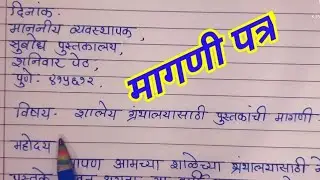 दिनांक.
माननीय व्यवस्थापक,
सुबोध पुस्तकालय,
शनिवार पेठ,
पुणे- ४११५१२.
मागणी पत्र
विषय- शालेय ग्रंथालयासाठी पुस्तकांची मागणी
महोदय
आपण आमच्या शाळेच्या ग्रंथालयासाठी
पुस्तके